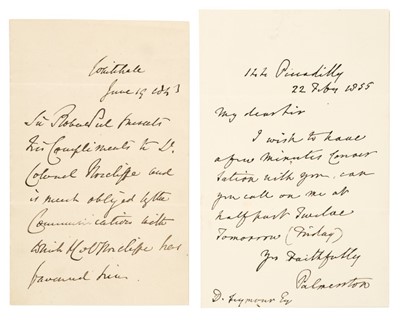 Whitehall
June 19 1843
Sir Robert Peel presents
his Compliments to Lt
Colonel Norcliffe and
is much obliged by the
Communication with
which Col Norcliffe has
favoured him.
144 Piccadilly
22 Feby 1855
My dear Sir
I wish to have
a few minutes Conver
sation with you, can
you call on me at
half past Twelve
Tomorrow (Friday)
Yrs faithfully
Palmerston
D. Seymour Esq